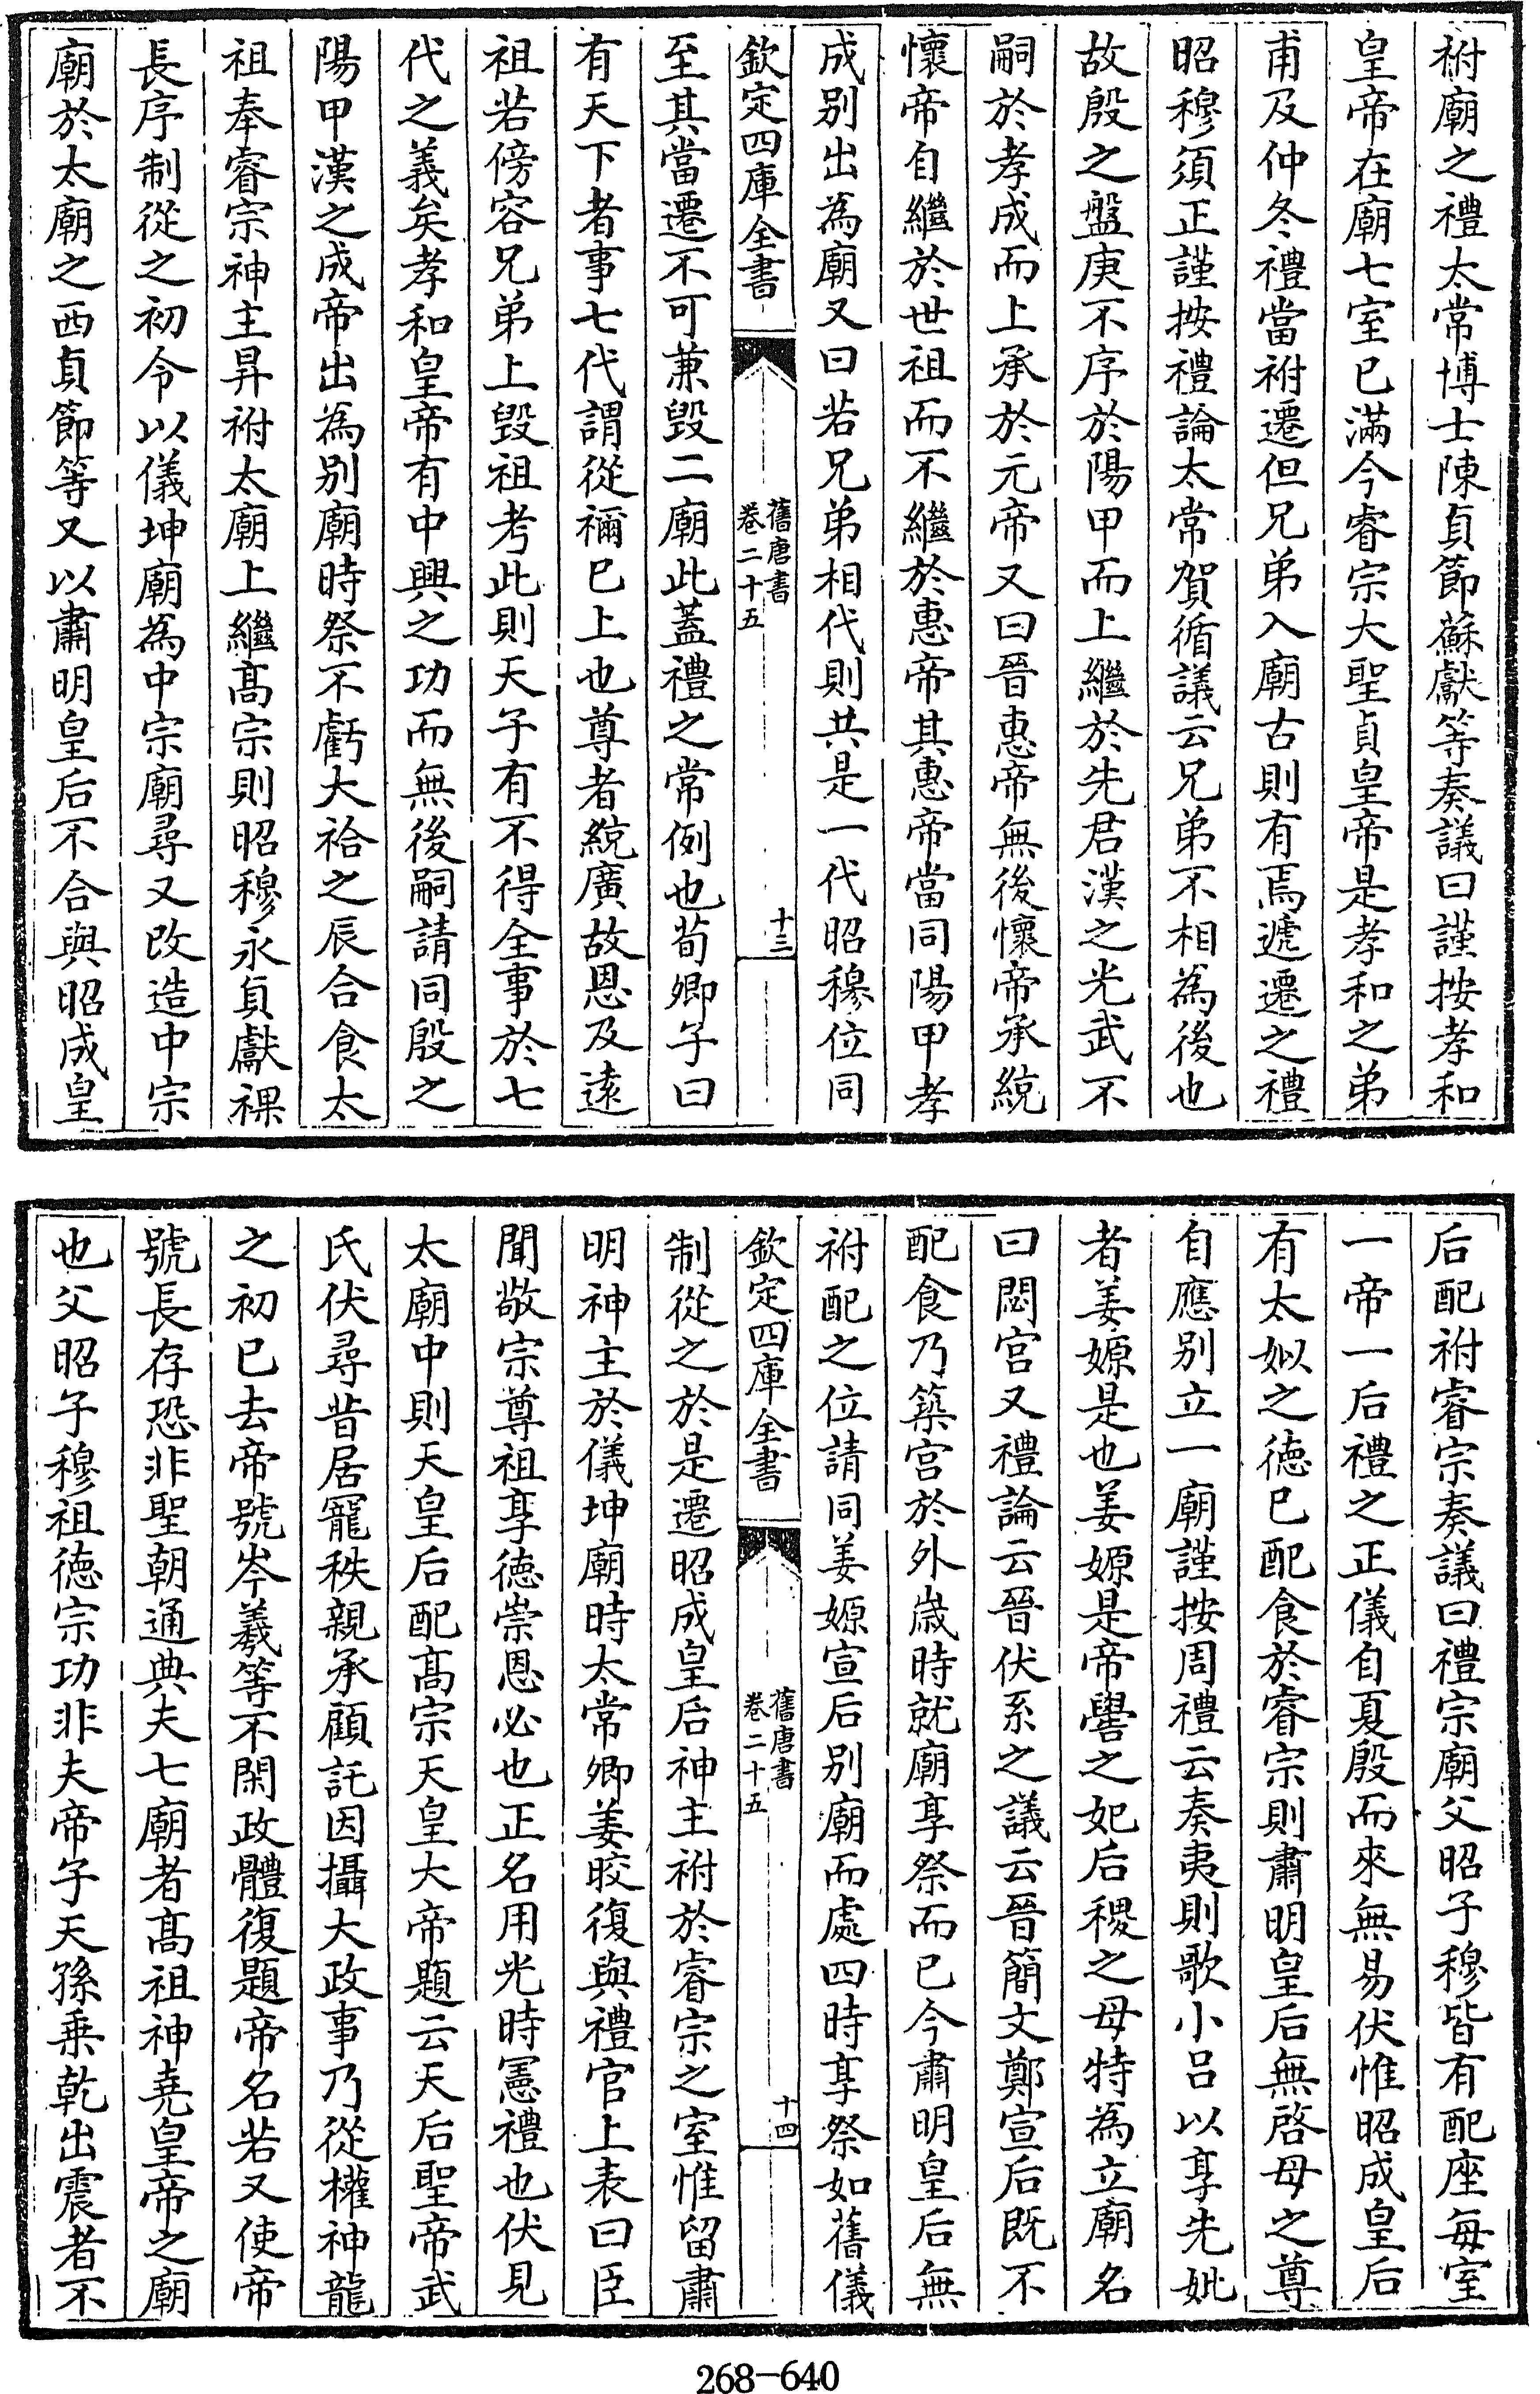 祔廟之禮太常博士陳貞節蘇獻等奏議曰謹按孝和
皇帝在廟七室已滿今睿宗大聖貞皇帝是孝和之弟
甫及仲冬禮當祔遷但兄弟入廟古則有焉遞遷之禮
昭穆須正謹按禮論太常賀循議云兄弟不相為後也
故殷之盤庚不序於陽甲而上繼於先君漢之光武不
嗣於孝成而上承於元帝又曰晉惠帝無後懷帝承統
懷帝自繼於世祖而不繼於惠帝其惠帝當同陽甲孝
成别出為廟又曰若兄弟相代則共是一代昭穆位同
欽定四庫全書
舊唐書
卷二十五
十三
至其當遷不可兼毀二廟此蓋禮之常例也荀卿子曰
有天下者事七代謂從禰已上也尊者統廣故恩及逺
祖若傍容兄弟上毀祖考此則天子有不得全事於七
代之義矣孝和皇帝有中興之功而無後嗣請同殷之
陽甲漢之成帝出為别廟時祭不虧大祫之辰合食太
祖奉睿宗神主昇祔太廟上繼髙宗則昭穆永貞獻祼
長序制從之初令以儀坤廟為中宗廟尋又改造中宗
廟於太廟之西貞節等又以肅明皇后不合與昭成皇
后配祔睿宗奏議曰禮宗廟父昭子穆皆有配座每室
一帝一后禮之正儀自夏殷而來無易伏惟昭成皇后
有太姒之徳已配食於睿宗則肅明皇后無啓母之尊
自應别立一廟謹按周禮云奏夷則歌小呂以享先妣
者姜嫄是也姜嫄是帝嚳之妃后稷之母特為立廟名
曰閟宫又禮論云晉伏系之議云晉簡文鄭宣后既不
配食乃築宫於外歳時就廟享祭而已今肅明皇后無
祔配之位請同姜嫄宣后别廟而處四時享祭如舊儀
欽定四庫全書
舊唐書
卷二十五
十四
制從之於是遷昭成皇后神主祔於睿宗之室惟留肅
明神主於儀坤廟時太常卿姜晈復與禮官上表曰臣
聞敬宗尊祖享徳崇恩必也正名用光時憲禮也伏見
太廟中則天皇后配髙宗天皇大帝題云天后聖帝武
氏伏尋昔居寵秩親承顧託因攝大政事乃從權神龍
之初已去帝號岑羲等不閑政體復題帝名若又使帝
號長存恐非聖朝通典夫七廟者髙祖神堯皇帝之廟
也父昭子穆祖徳宗功非夫帝子天孫乗乾出震者不
268-640